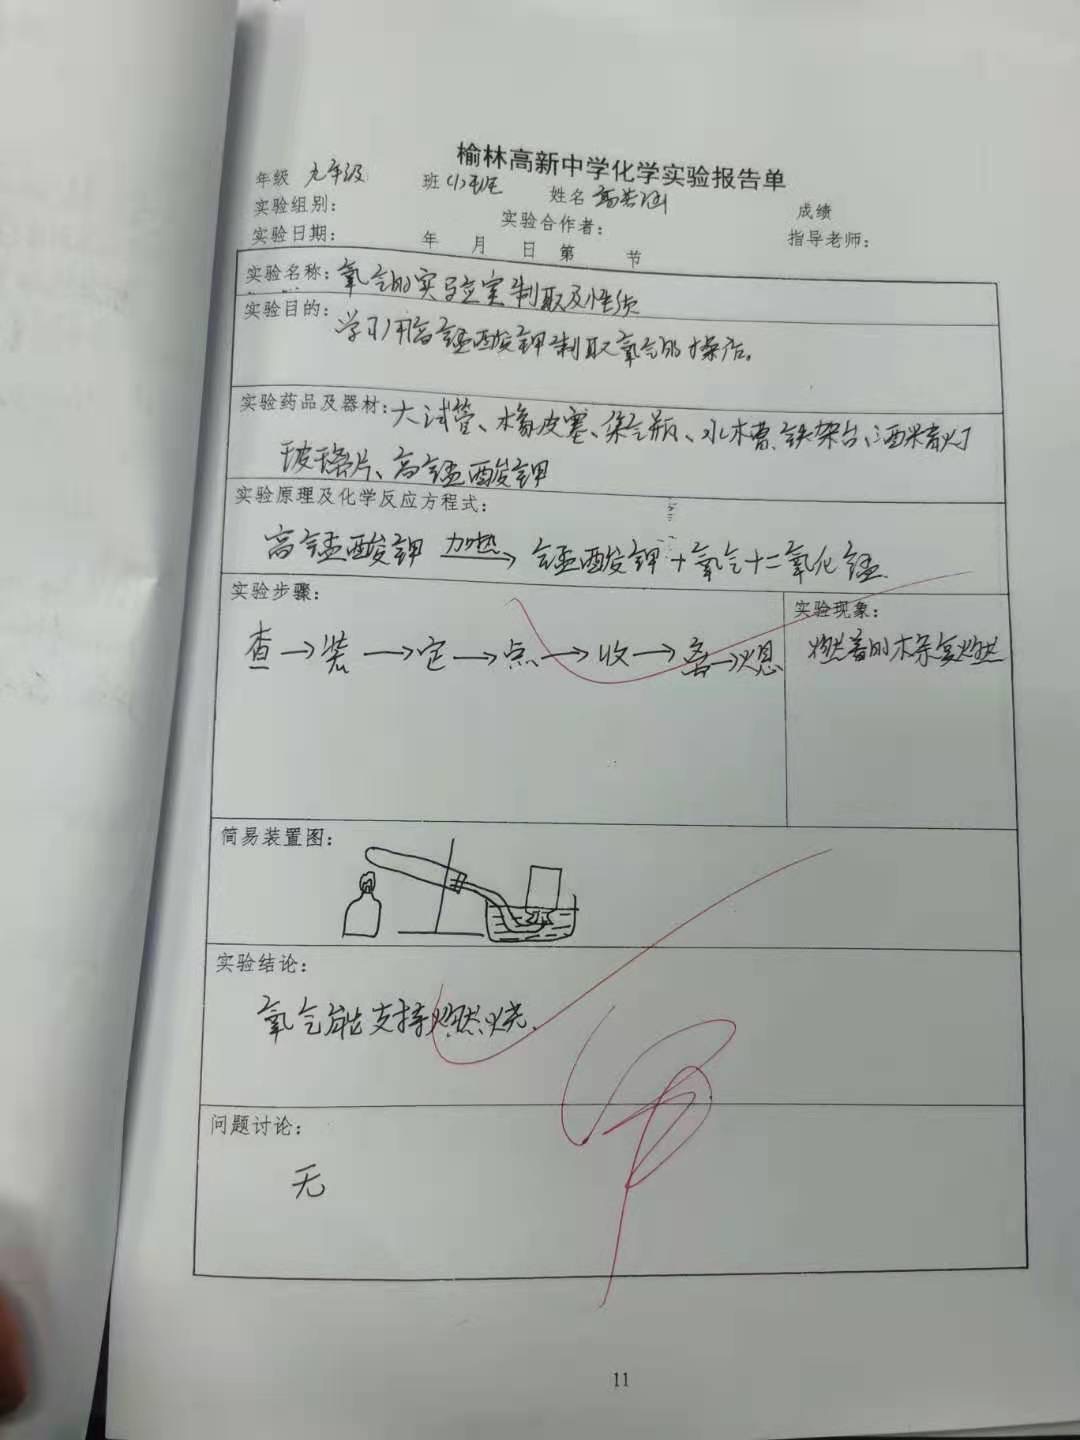 榆林高新中学化学实验报告单
年级 九年级 班 (1)班 姓名 成绩
实验组别: 实验合作者: 指导老师:
实验日期: 年 月 日 第 节
实验名称: 氧气的实验室制取及性质
实验目的: 学习用高锰酸钾制取氧气的操作。
实验药品及器材: 大试管、橡皮塞、集气瓶、水槽、铁架台、酒精灯
玻璃片、高锰酸钾
实验原理及化学反应方程式:
高锰酸钾 加热→ 锰酸钾+氧气+二氧化锰
实验步骤: 实验现象:
查→装→定→点→收→离→熄 燃着的木条复燃
简易装置图:
实验结论:
氧气能支持燃烧.
问题讨论:
无
11